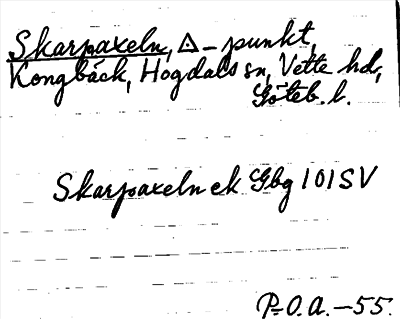 Skarpaxeln, △-punkt,
Kongbäck, Hogdals sn, Vette hd,
Göteb. l.
Skarpaxeln ek Gbg 101SV
P.O.A.-55.